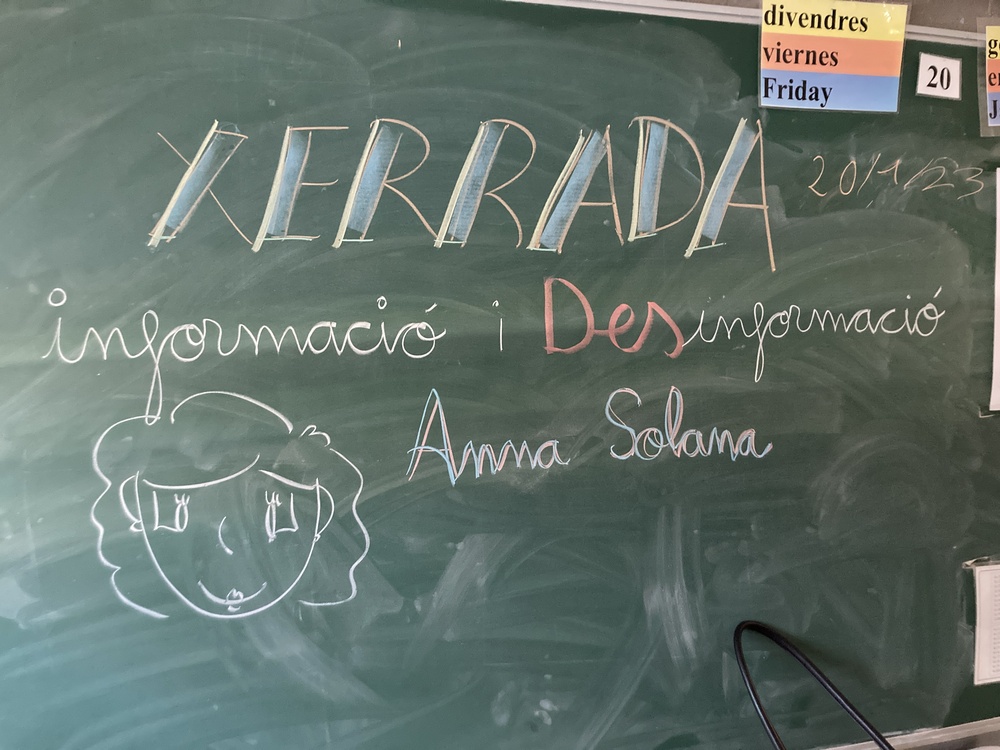 divendres
viernes
Friday
20
XERRADA
20/1/23
informació i Desinformació
Anna Solana